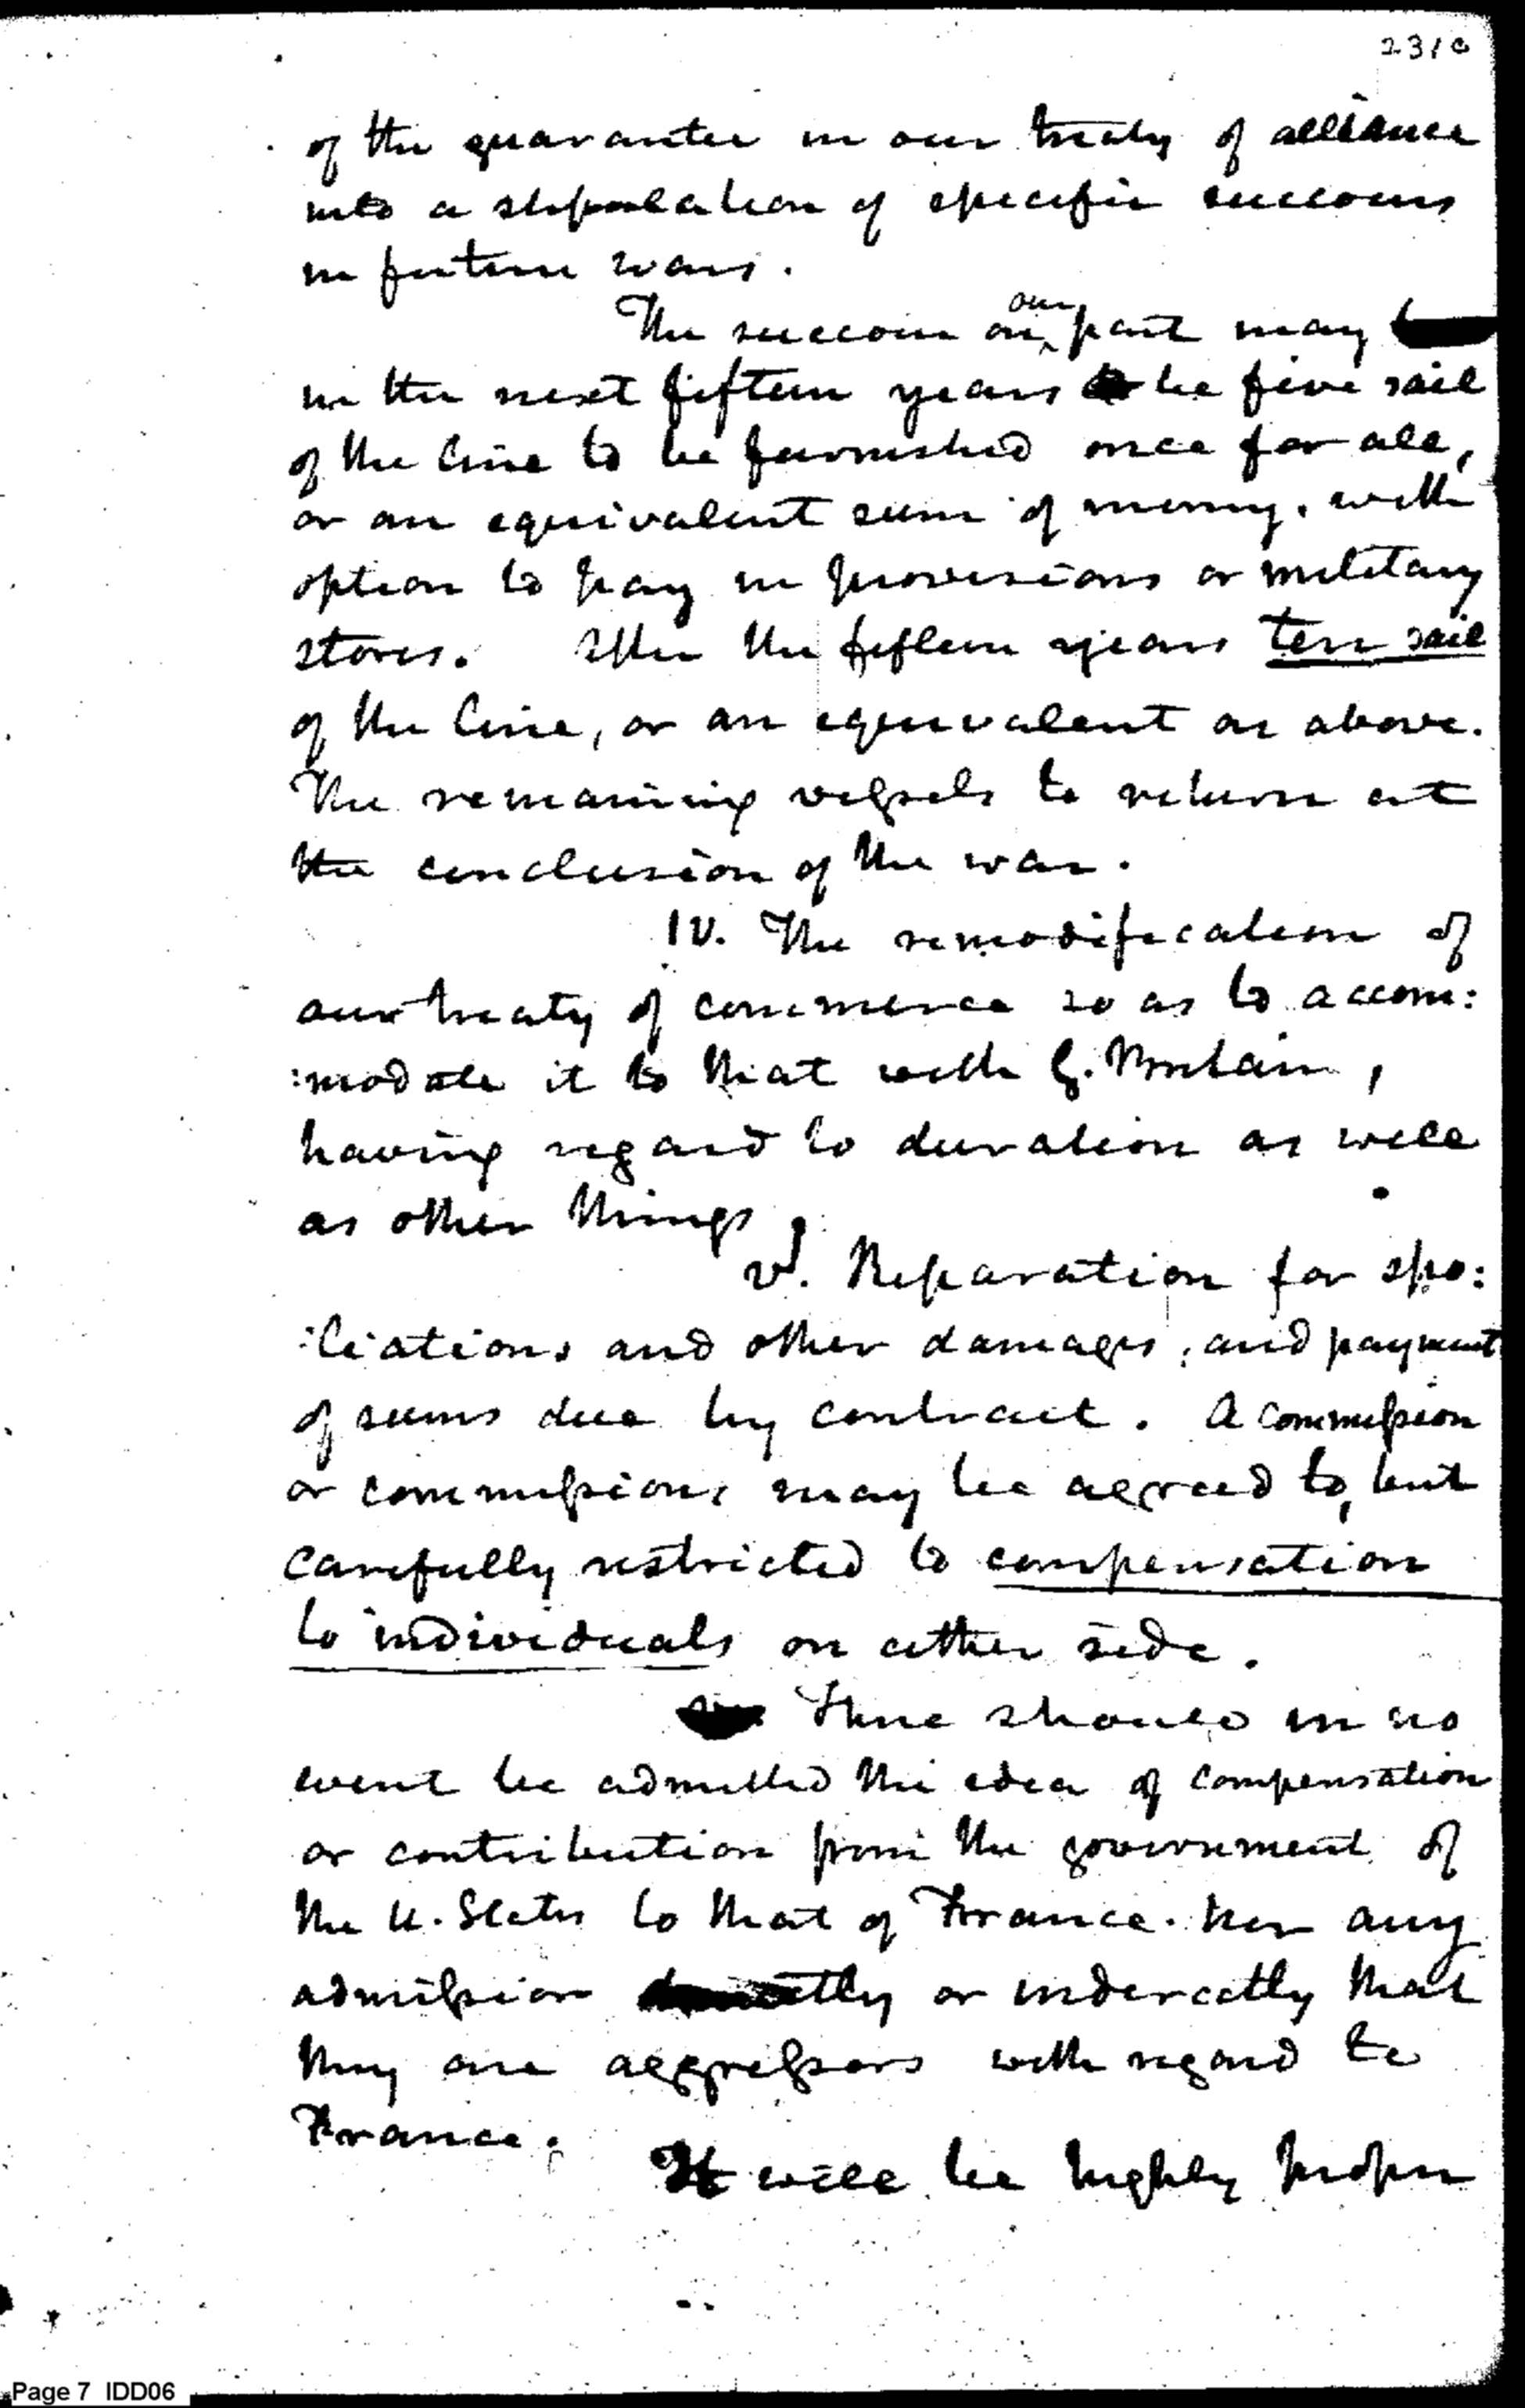 2310
of the guarantee in our treaty of alliance
into a stipulation of specific succours
in future wars.
our
The succour on part may
in the next fifteen years be five sail
of the line to be furnished once for all,
or an equivalent sum of money, with
option to pay in provisions or military
stores. After the fifteen years ten sail
of the line, or an equivalent as above.
The remaining vessels to return at
the conclusion of the war.
IV. The remodification of
our treaty of commerce so as to accom:
:modate it to that with G. Britain,
having regard to duration as well
as other things.
V. Reparation for spo:
:liations and other damages, and payment
of sums due by contract. A commission
or commissions may be agreed to, but
carefully restricted to compensation
to individuals on either side.
There should in no
event be admitted the idea of compensation
or contribution from the government of
the U. States to that of France. nor any
admission directly or indirectly that
they are aggressors with regard to
France.
It will be highly proper
Page 7 IDD06